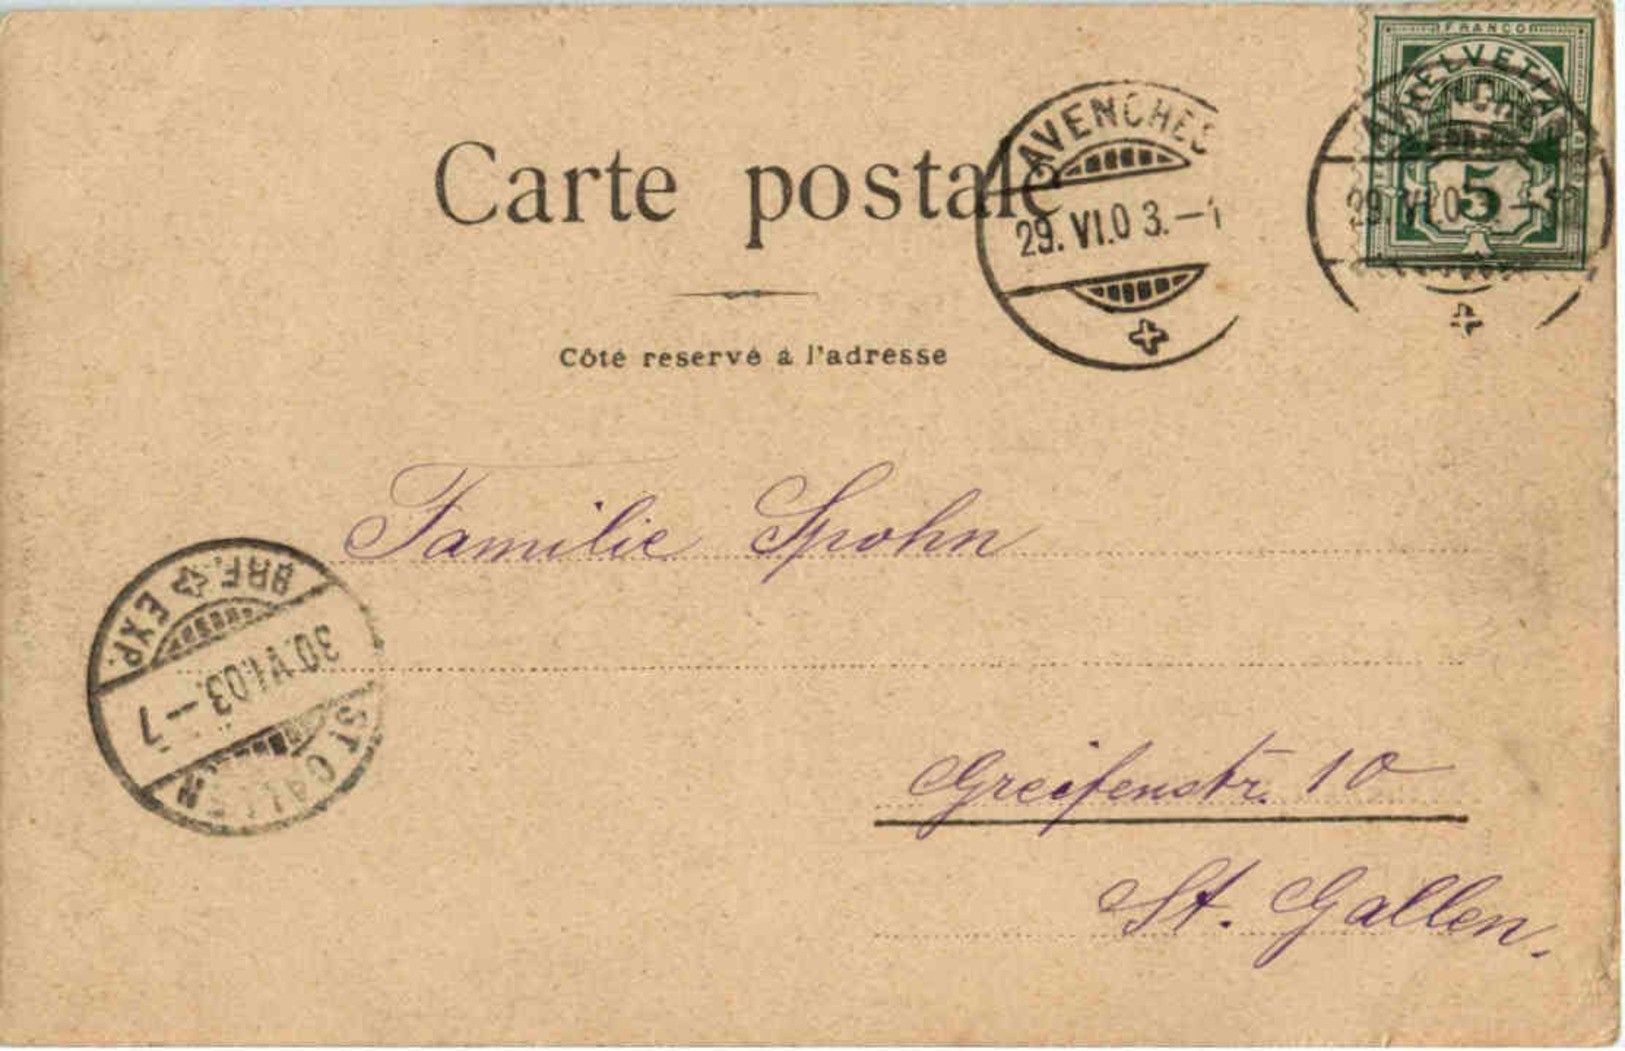 FRANCO
HELVETIA
5
AVENCHES
29. VI. 03. — 1
AVENCHES
29. VI. 0
Carte postale
Côté reservé à l'adresse
Familie Spohn
BRF. EXP.
30. VI. 03 — 7
ST. GALLEN
Greifenstr. 10
St. Gallen.